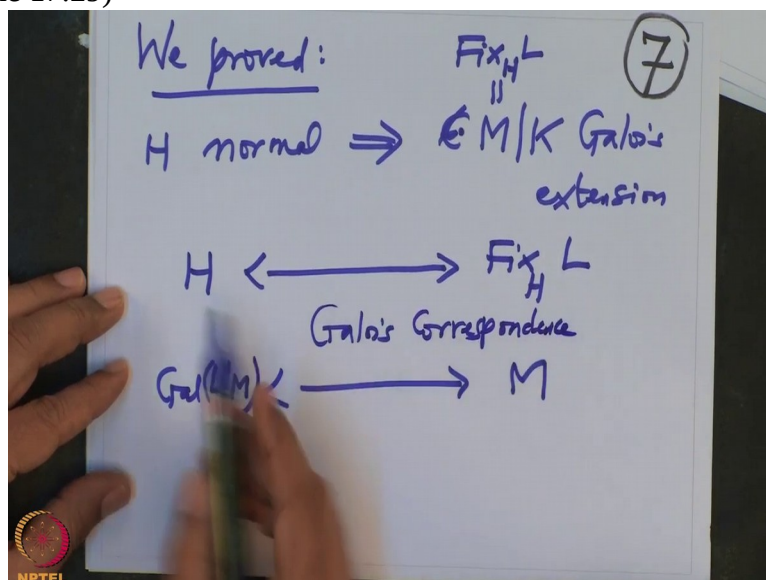 We proved:
Fix_H L
7
||
H normal ⇒ M|K Galois
extension
H <——> Fix_H L
Galois Correspondence
Gal(L|M) <——> M
NPTEL